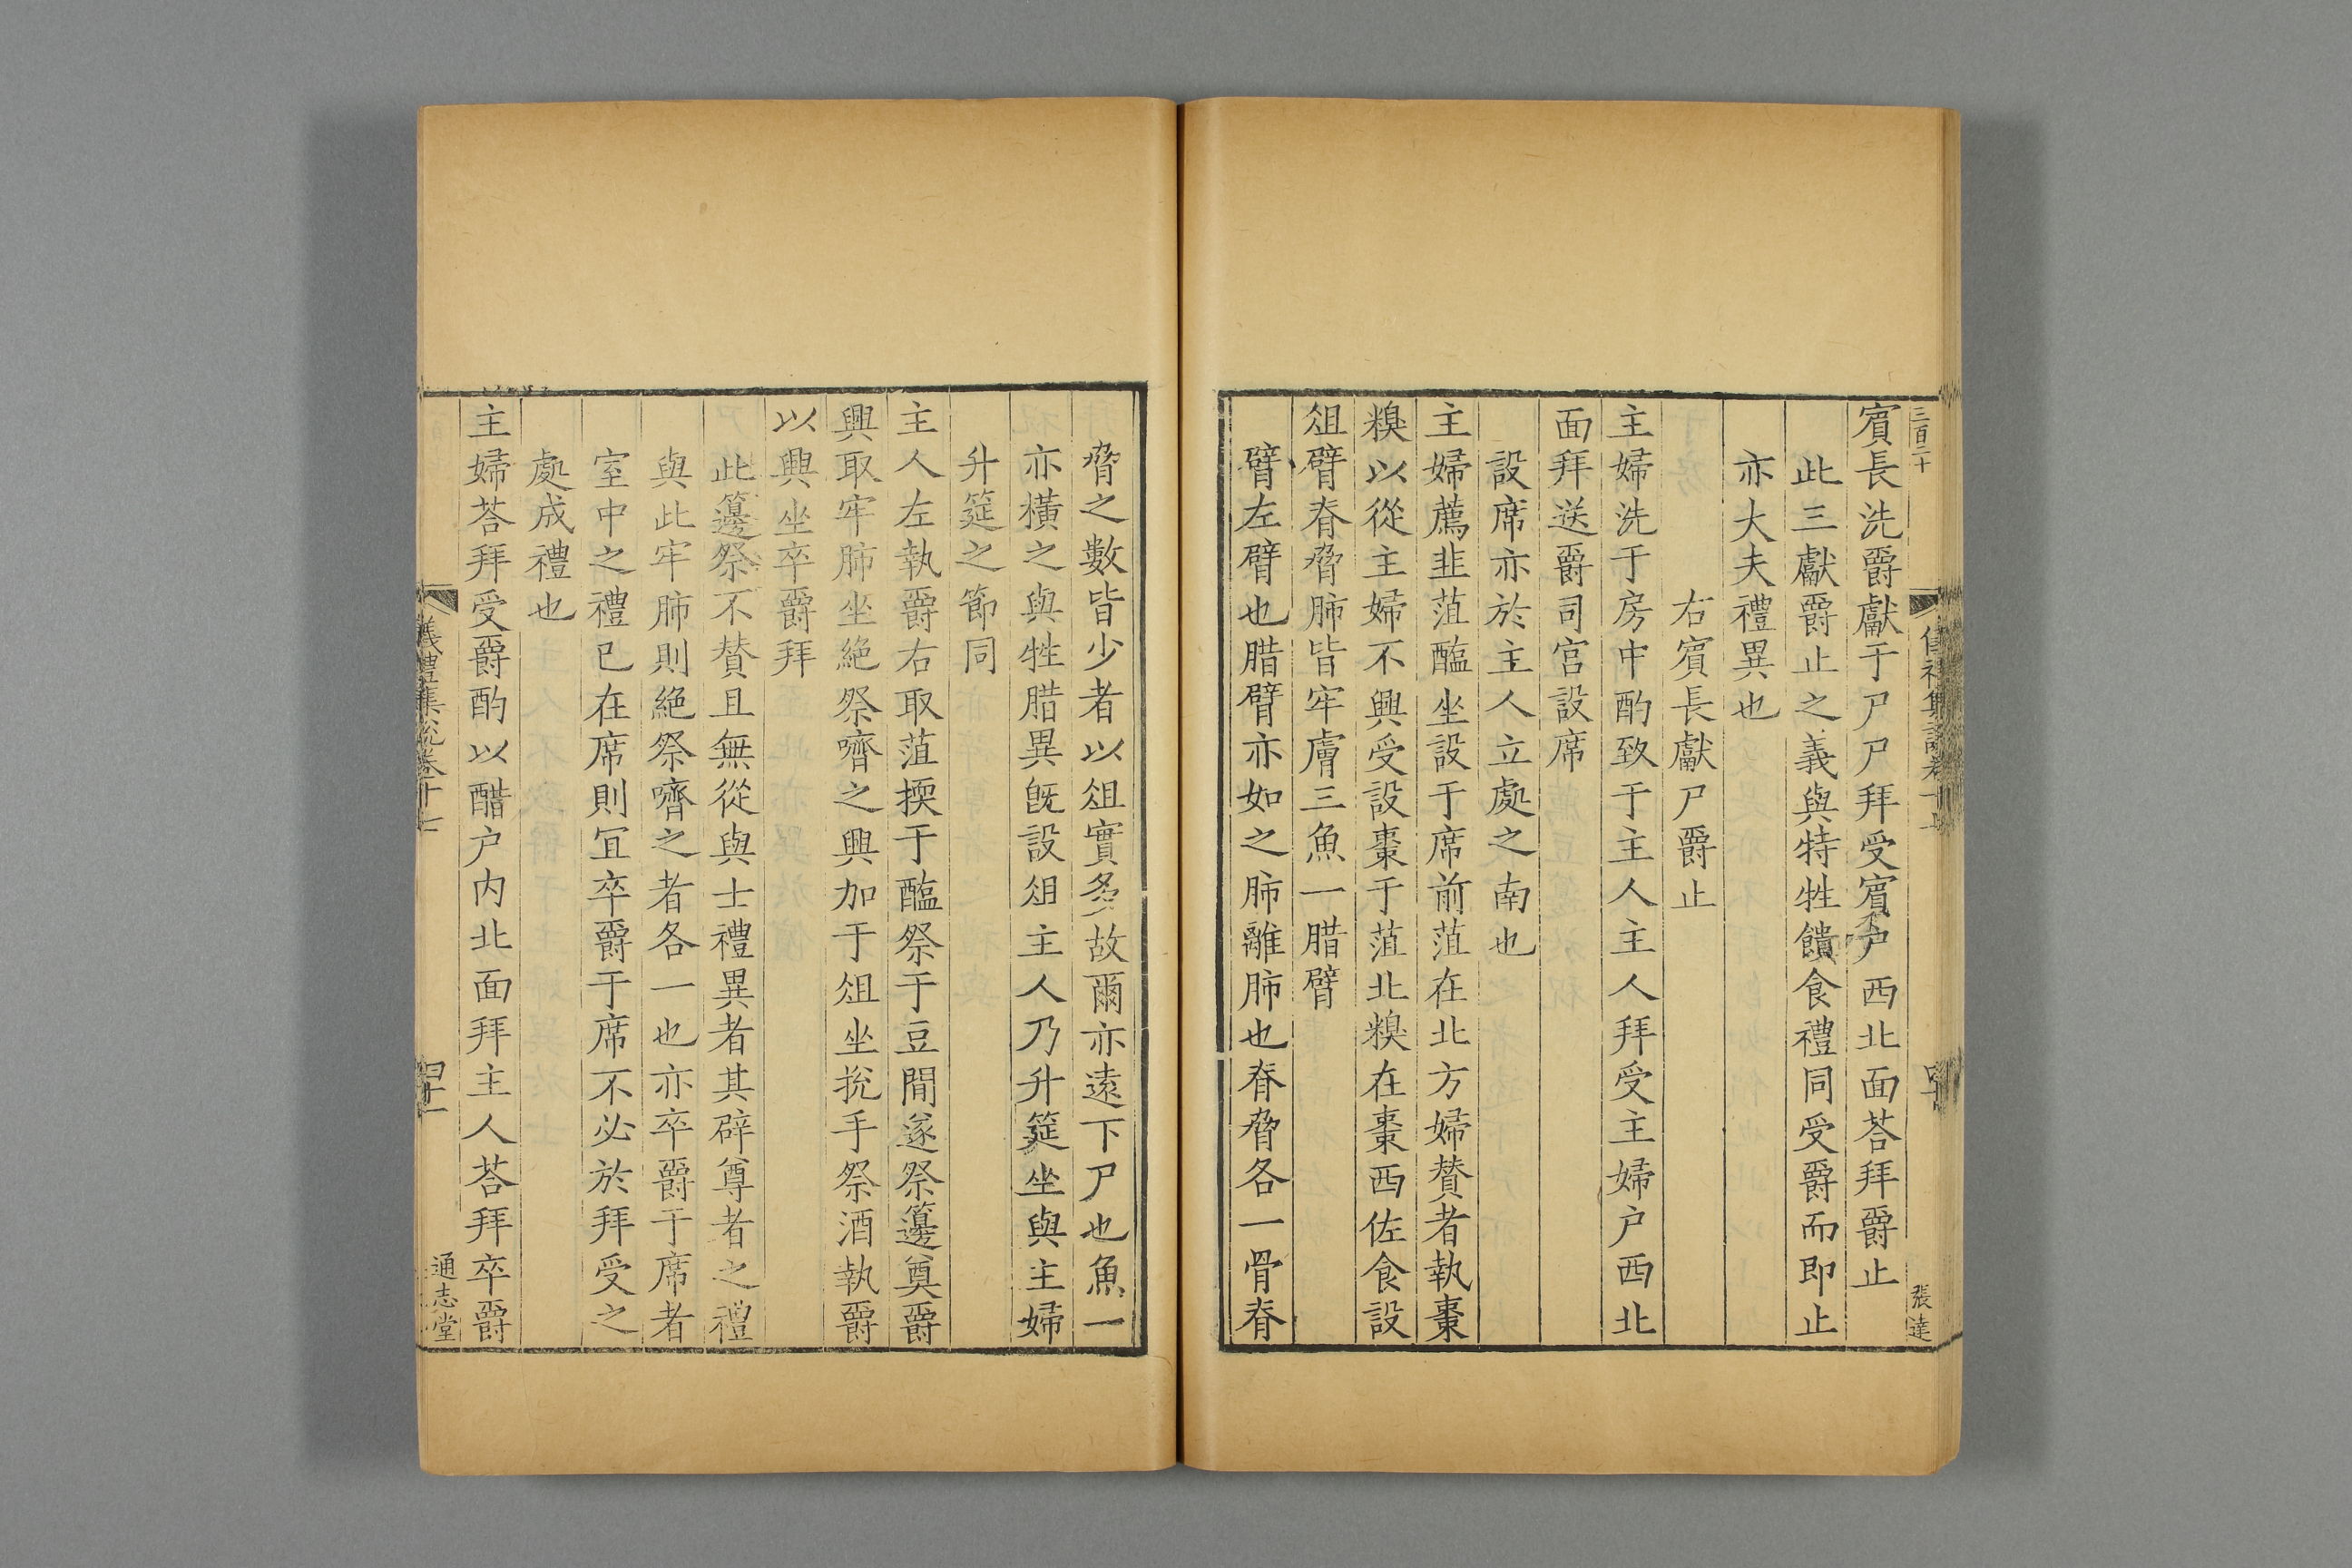 三百二十
張達
賔長洗爵獻于尸尸拜受賔户西北面荅拜爵止
此三獻爵止之義與特牲饋食禮同受爵而即止
亦大夫禮異也
右賔長獻尸爵止
主婦洗于房中酌致于主人主人拜受主婦户西北
面拜送爵司宫設席
設席亦於主人立處之南也
主婦薦韭菹醢坐設于席前菹在北方婦賛者執棗
糗以從主婦不興受設棗于菹北糗在棗西佐食設
俎臂脊脅肺皆牢膚三魚一腊臂
臂左臂也腊臂亦如之肺離肺也脊脅各一骨脊
脅之數皆少者以俎實多故爾亦遠下尸也魚一
亦横之與牲腊異旣設俎主人乃升筵坐與主婦
升筵之節同
主人左執爵右取菹擩于醢祭于豆間遂祭籩奠爵
興取牢肺坐絶祭嚌之興加于俎坐挩手祭酒執爵
以興坐卒爵拜
此籩祭不賛且無從與士禮異者其辟尊者之禮
與此牢肺則絶祭嚌之者各一也亦卒爵于席者
室中之禮已在席則冝卒爵于席不必於拜受之
處成禮也
主婦荅拜受爵酌以醋户内北面拜主人荅拜卒爵
儀禮集説卷十七
四十一
通志堂